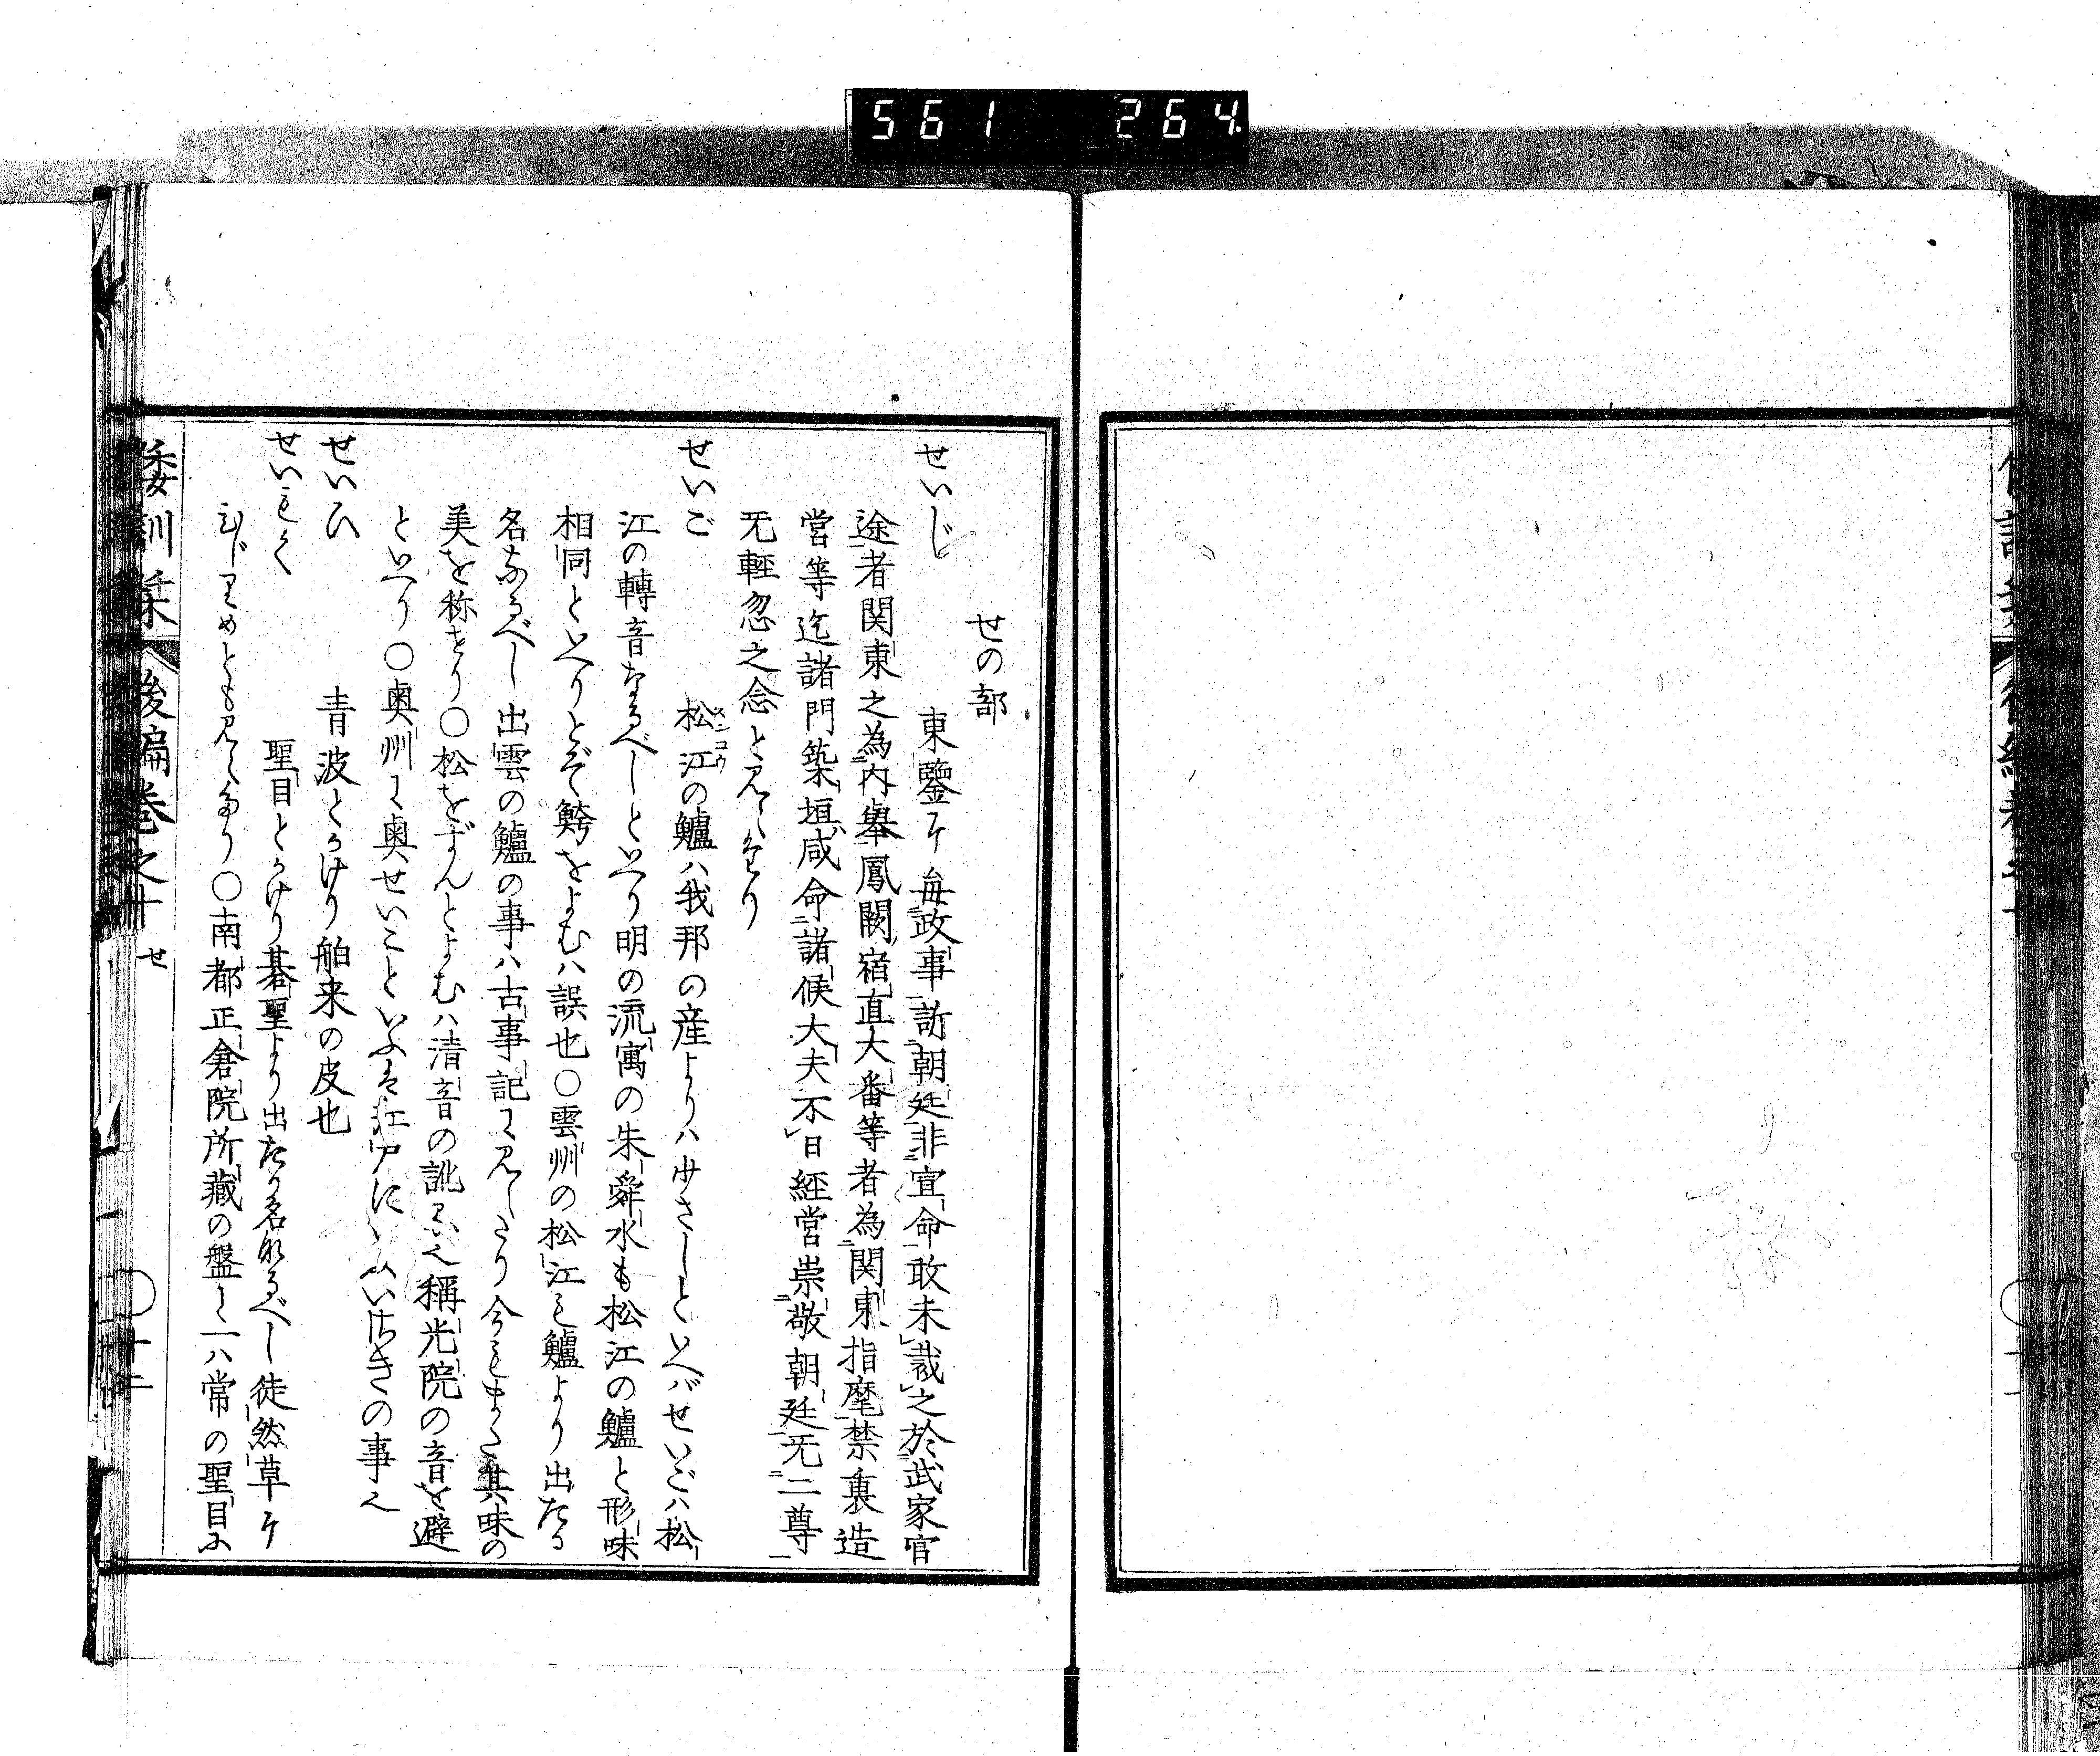 561 264
せの部
せいじ 東鑒に毎政事訴朝廷非宣命敢未裁之於武家官
途者関東之為内舉鳳闕宿直大番等者為関東指麾禁裏造
営等迄諸門築垣咸命諸候大夫不日經営崇敬朝廷无二尊
无輕忽之念と見えたり
せいご 松江の鱸ハ我邦の産よりハ少さしといへバせいごハ松
ズンコウ
江の轉音なるべしといへり明の流寓の朱舜水も松江の鱸と形味
相同といへりとぞ鮬をよむハ誤也〇雲州の松江も鱸より出たる
名なるべし出雲の鱸の事ハ古事記に見えたり今もまた其味の
美を称せり〇松をずんとよむハ清音の訛也稱光院の音を避
といへり〇奥州に奥せいことといふは江戸に
せいひ 青波とかけり舶来の皮也
せいもく 聖目とかけり碁聖より出たる名なるべし徒然草に
ひじりめとも見えたり〇南都正倉院所蔵の盤も一八常の聖目に
倭訓栞 後編巻之十 せ 〇十二